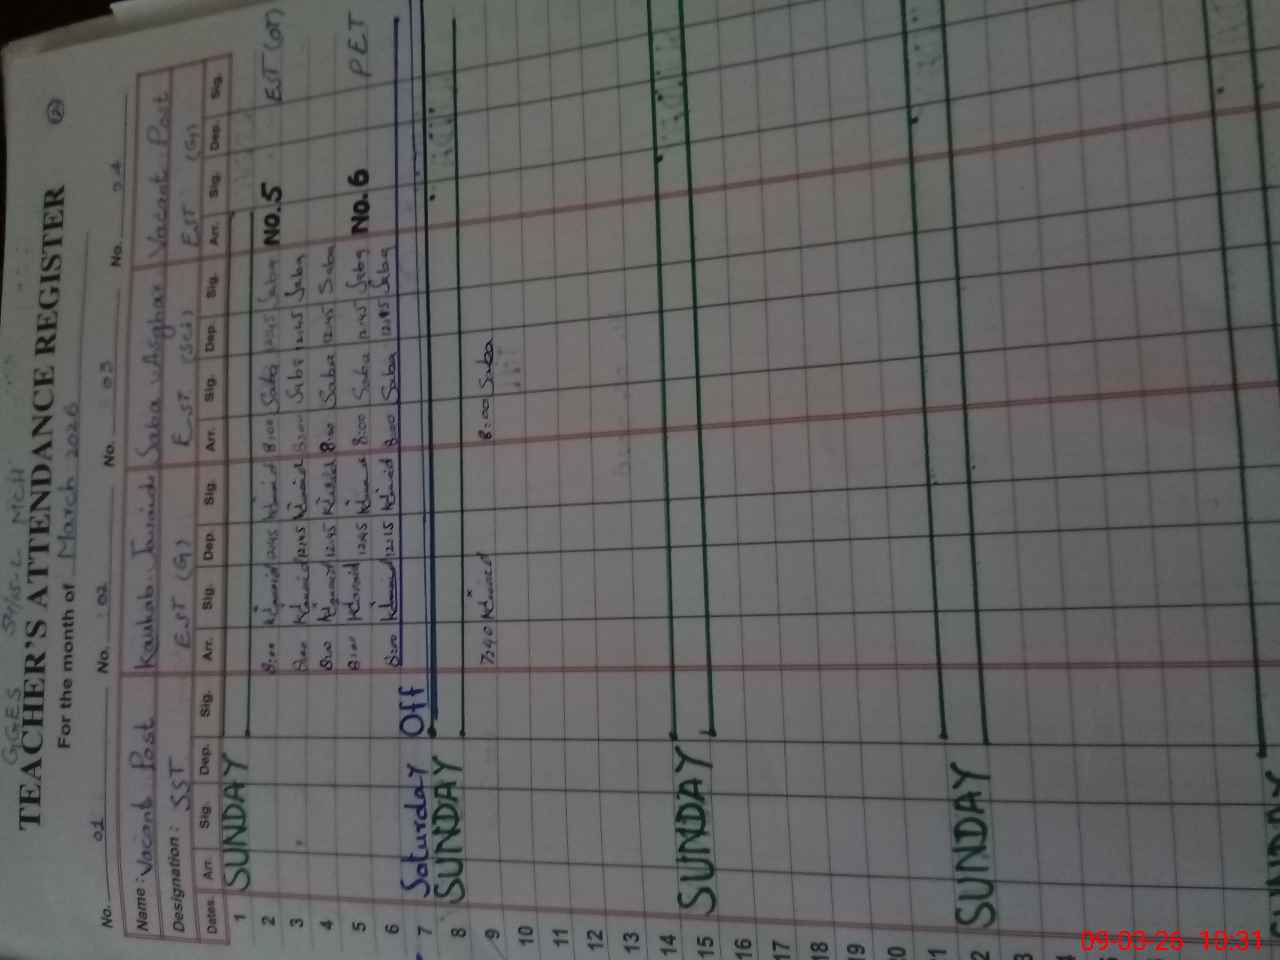 GGES
TEACHER'S ATTENDANCE REGISTER
For the month of March 2026
No. 01 No. 02 No. 03 No. 04
Name: Vacant Post Kaukab Junaid Saba Asghar Vacant Post
Designation: SST EST (G) EST EST (G)
Dates. Arr. Sig. Dep. Sig. Arr. Sig. Dep. Sig. Arr. Sig. Dep. Sig. Arr. Sig. Dep. Sig.
1 SUNDAY
2 8:00 12:45 8:00 Saba 12:45 Saba No.5 EST
3 8:00 12:45 8:00 Saba 12:45 Saba
4 8:00 12:45 8:00 Saba 12:45 Saba
5 8:00 12:45 8:00 Saba 12:45 Saba No.6 PET
6 8:00 12:15 8:00 Saba 12:15 Saba
7 Saturday Off
8 SUNDAY
9 7:40 8:00 Saba
10
11
12
13
14
15 SUNDAY
16
17
18
19
20
21
2 SUNDAY
09-03-26 10:31